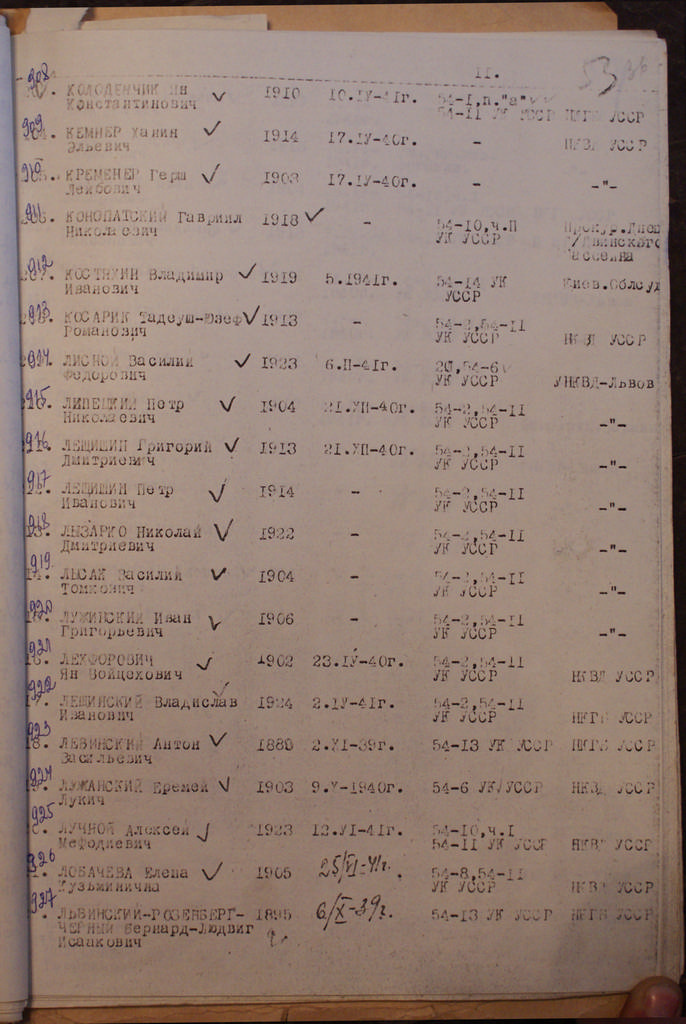 II.
53
36
908
КОЛОДЕНЧИК Ян 1910 10.IУ-41г. 54-I,п."а"
Константинович 54-11 УК УССР НКГБ УССР
909
КЕМПЕР Хаим 1914 17.IУ-40г. - НКВД УССР
Эльевич
910
КРЕМЕНЕР Герш 1903 17.IУ-40г. - -"-
Лейбович
911
КОНОПАТСКИЙ Гавриил 1918 - 54-10,ч.П
Николаевич УК УССР
912
КОСТЯХИН Владимир 1919 5.1941г. 54-14 УК Киев.Облсуд
Иванович УССР
913
КОСАРИК Тадеуш-Юзеф 1913 - 54-2,54-11
Романович УК УССР НКВД УССР
914
ЛИСНОЙ Василий 1923 6.П-41г. 20,54-6
Федорович УК УССР УНКВД-Львов
915
ЛИПЕЦКИЙ Петр 1904 21.ХП-40г. 54-2,54-11
Николаевич УК УССР -"-
916
ЛЕЩИШИН Григорий 1913 21.ХП-40г. 54-2,54-11
Дмитриевич УК УССР -"-
917
ЛЕЩИШИН Петр 1914 - 54-2,54-11
Иванович УК УССР -"-
918
ЛЫЗАРКО Николай 1922 - 54-2,54-11
Дмитриевич УК УССР -"-
919
ЛЫСАК Василий 1904 - 54-2,54-11
Томкович УК УССР -"-
920
ЛУЖИНСКИЙ Иван 1906 - 54-2,54-11
Григорьевич УК УССР -"-
921
ЛЕХФОРОВИЧ 1902 23.IУ-40г. 54-2,54-11
Ян Войцехович УК УССР НКВД УССР
922
ЛЕЩИНСКИЙ Владислав 1924 2.IУ-41г. 54-2,54-11
Иванович УК УССР НКГБ УССР
923
18. ЛЕВИНСКИЙ Антон 1880 2.XI-39г. 54-13 УК УССР НКГБ УССР
Васильевич
924
ЛУЖАНСКИЙ Еремей 1903 9.У-1940г. 54-6 УК УССР НКВД УССР
Лукич
925
ЛУЧНОЙ Алексей 1923 12.УI-41г. 54-10,ч.I
Мефодиевич 54-11 УК УССР НКВД УССР
926
ЛОБАЧЕВА Елена 1905 25/VI-41г. 54-8,54-11
Кузьминична УК УССР НКВД УССР
927
ЛЬВИНСКИЙ-РОЗЕНБЕРГ- 1895 6/X-39г. 54-13 УК УССР НКГБ УССР
ЧЕРНЫЙ Бернард-Людвиг
Исаакович